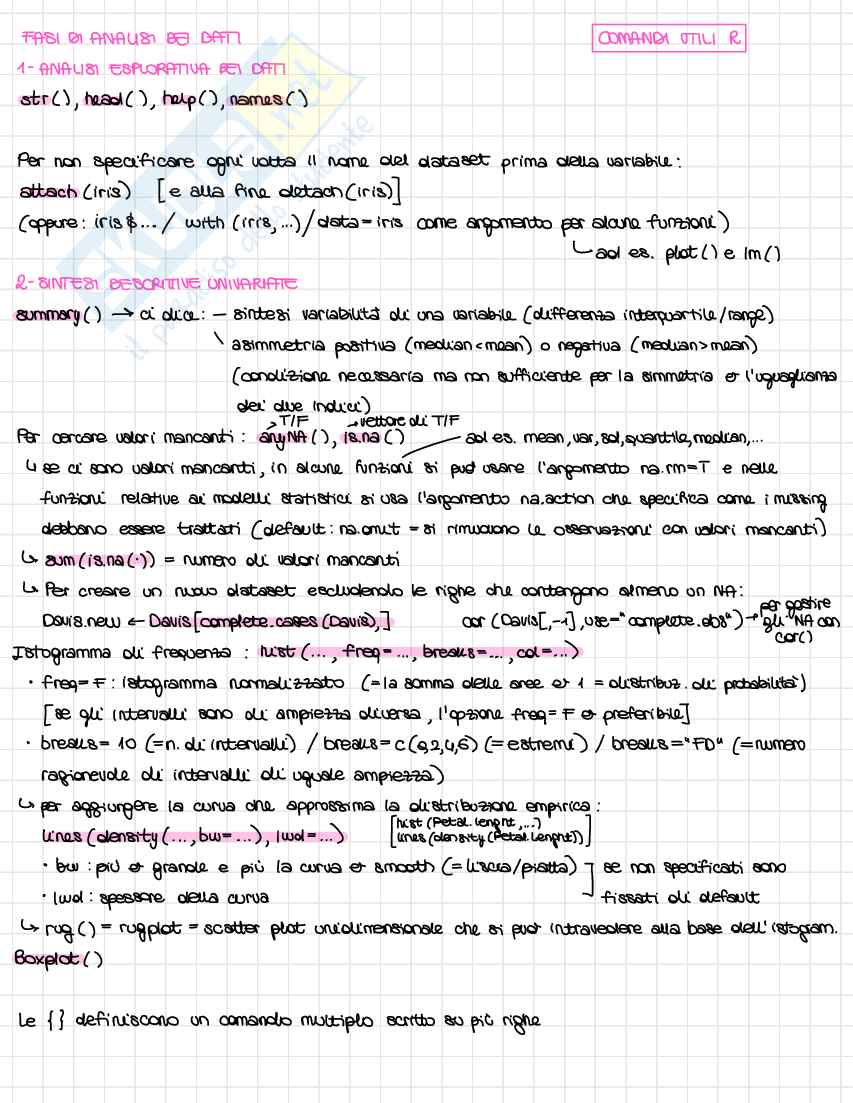 FASI DI ANALISI DEI DATI
COMANDI UTILI R
1- ANALISI ESPLORATIVA DEI DATI
str(), head(), help(), names()
Per non specificare ogni volta il nome del dataset prima della variabile:
attach (iris) [e alla fine detach (iris)]
(oppure: iris $ ... / with (iris, ...) / data = iris come argomento per alcune funzioni)
↳ ad es. plot() e lm()
2- SINTESI DESCRITTIVE UNIVARIATE
summary() → ci dice: - sintesi variabilità di una variabile (differenza interquartile/range)
\ asimmetria positiva (median<mean) o negativa (median>mean)
(condizione necessaria ma non sufficiente per la simmetria è l'uguaglianza
dei due indici)
Per cercare valori mancanti: anyNA(), is.na()
→ T/F
→ vettore di T/F
ad es. mean, var, sd, quantile, median, ...
↳ se ci sono valori mancanti, in alcune funzioni si può usare l'argomento na.rm=T e nelle
funzioni relative ai modelli statistici si usa l'argomento na.action che specifica come i missing
debbano essere trattati (default: na.omit = si rimuovono le osservazioni con valori mancanti)
↳ sum(is.na(·)) = numero di valori mancanti
↳ Per creare un nuovo dataset escludendo le righe che contengano almeno un NA:
Davis.new ← Davis[complete.cases (Davis),] cor (Davis[,-1], use="complete.obs") → per gestire
gli NA con
cor()
Istogramma di frequenza: hist (..., freq=..., breaks=..., col=...)
· freq=F: istogramma normalizzato (=la somma delle aree è 1 = distribuz. di probabilità)
[se gli intervalli sono di ampiezza diversa, l'opzione freq=F è preferibile]
· breaks= 10 (=n. di intervalli) / breaks=c(0,2,4,6) (=estremi) / breaks="FD" (=numero
ragionevole di intervalli di uguale ampiezza)
↳ per aggiungere la curva che approssima la distribuzione empirica:
lines (density (..., bw=...), lwd=...)
[hist (Petal.Lenght, ...)
lines (density (Petal.Lenght))]
· bw: più è grande e più la curva è smooth (=liscia/piatta)
· lwd: spessore della curva
se non specificati sono
fissati di default
↳ rug() = rugplot = scatter plot unidimensionale che si può intravedere alla base dell'istogram.
Boxplot()
Le {} definiscono un comando multiplo scritto su più righe
skuola.net
il paradiso dello studente